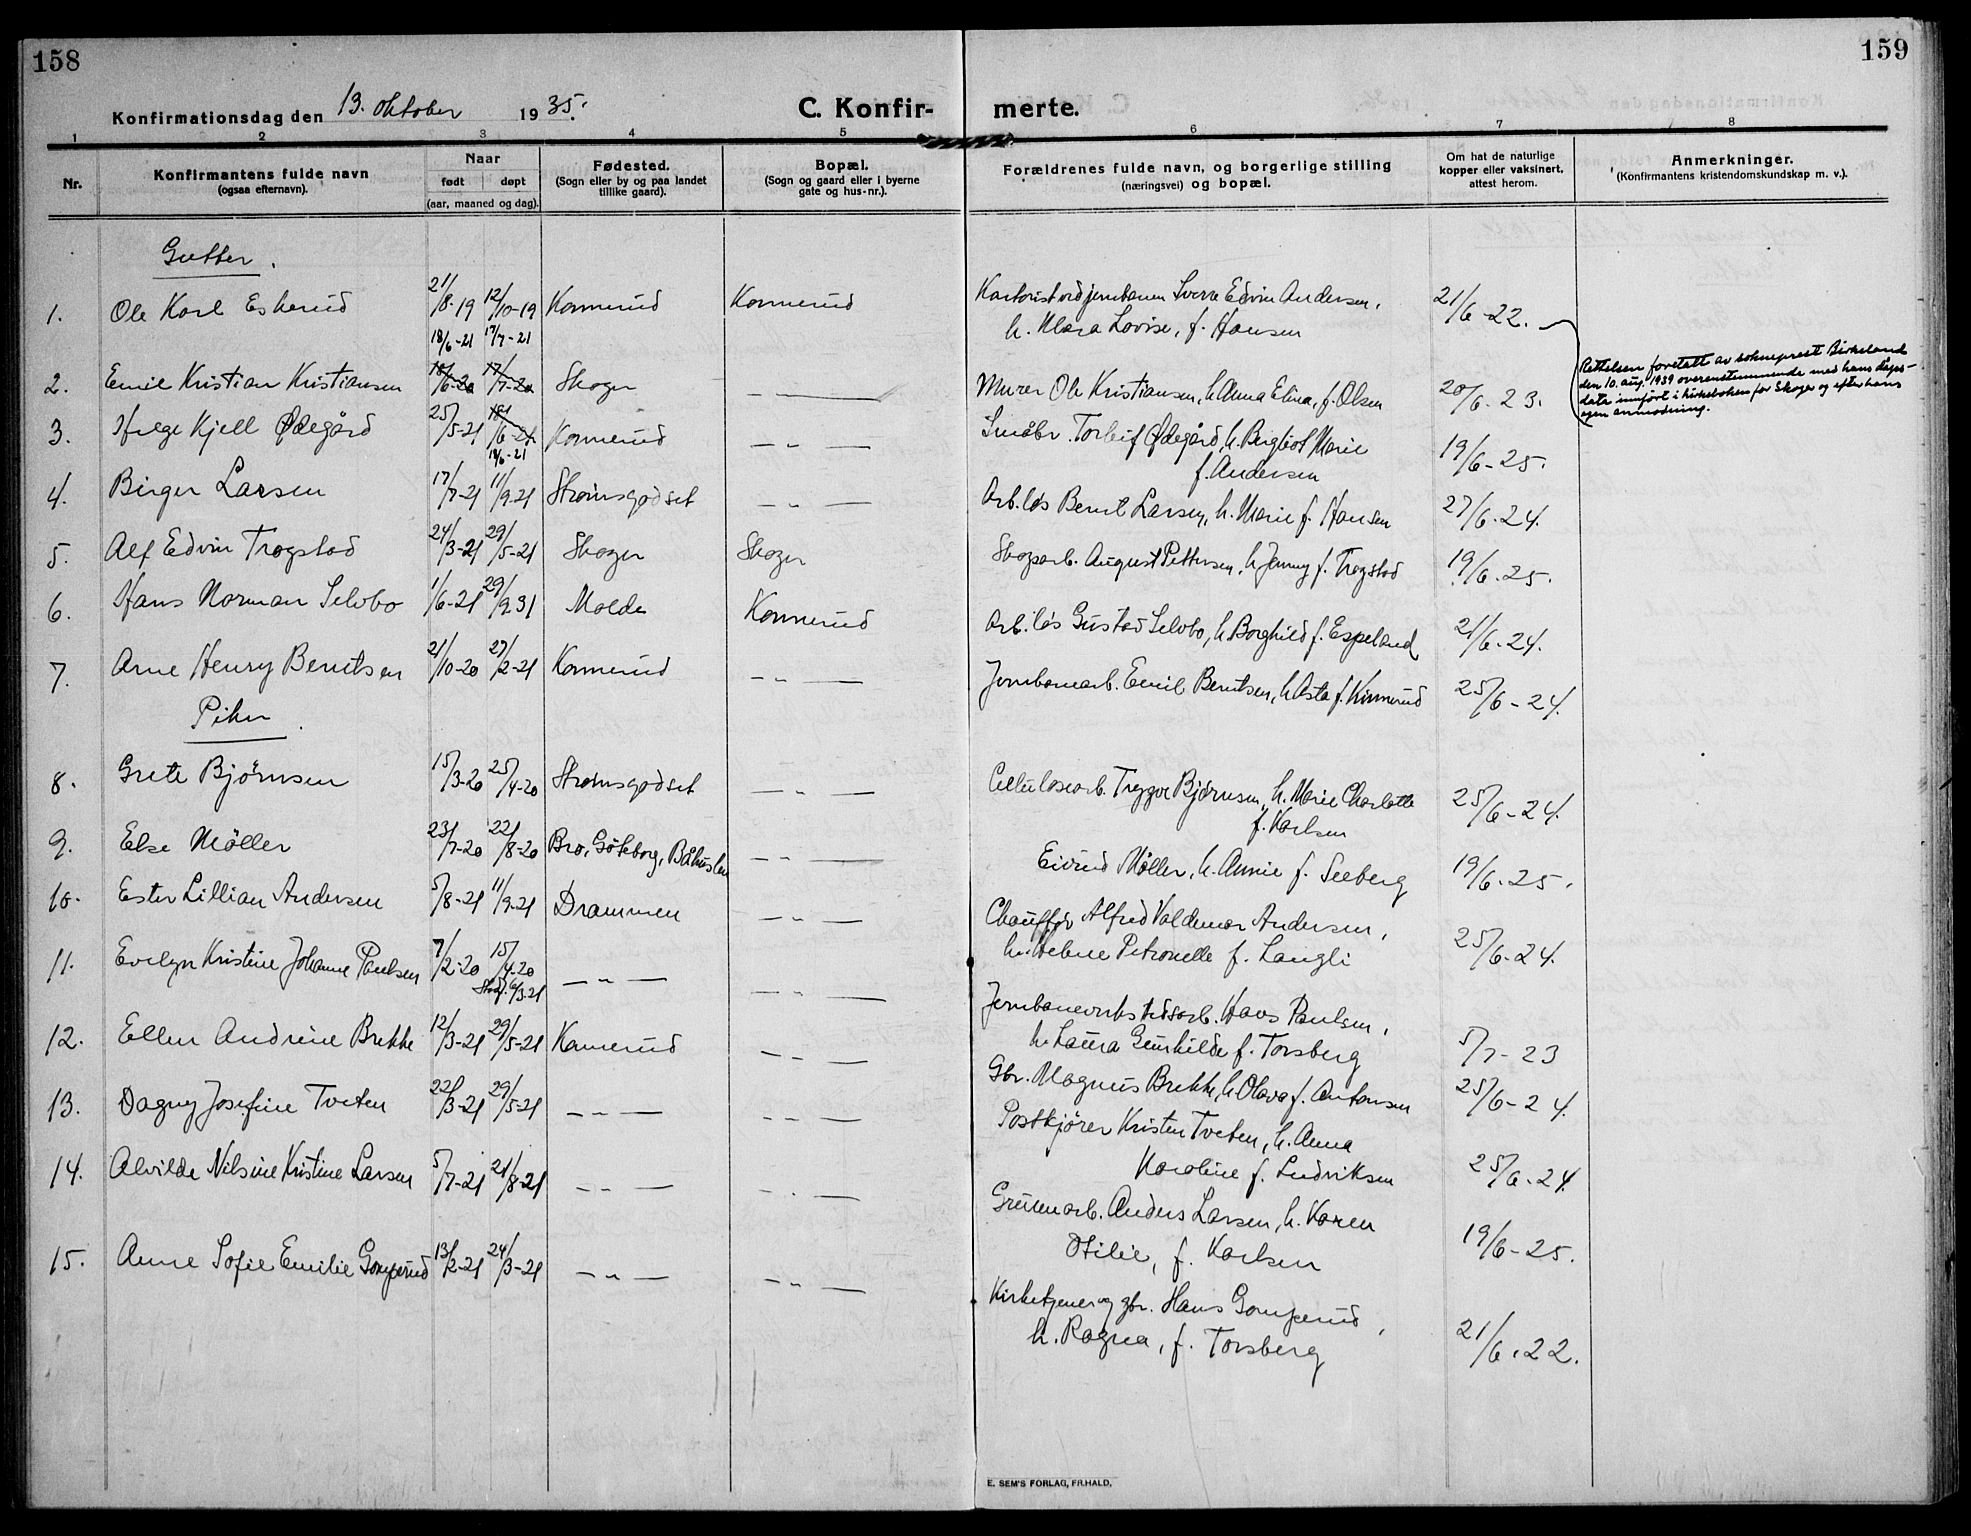 158
159
Konfirmationsdag den 13. oktober 1935.
C. Konfir-
merte.
1 2 3 4 5 6 7 8
Nr.
Konfirmantens fulde navn
(ogsaa efternavn).
Naar
født døpt
(aar, maaned og dag).
Fødested.
(Sogn eller by og paa landet
tillike gaard).
Bopæl.
(Sogn og gaard eller i byerne
gate og hus-nr.).
Forældrenes fulde navn, og borgerlige stilling
(næringsvei) og bopæl.
Om hat de naturlige
kopper eller vaksinert,
attest herom.
Anmerkninger.
(Konfirmantens kristendomskundskap m. v.).
Gutter.
1. Ole Karl Eskerud 21/8-19 12/10-19 Konnerud Konnerud
Kontorist ved jernbanen Sverre Edvin Andersen,
h. Mara Lovise, f. Hansen 21/6-22.
18/6-21 17/7-21
2. Emil Kristian Kristiansen 18/6-20 17/7-20 Skoger —„—
Murer Ole Kristiansen, h. Anna Elina, f. Olsen 20/6-23.
Rettelsen foretatt av sokneprest Birkeland
den 10. aug. 1939 overenstemmende med hans dåps-
data innført i kirkeboken for Skoger og efter hans
egen anmodning.
3. Helge Kjell Ødegård 25/5-21 18/6-21 Konnerud —„—
18/6-21
Småbr. Torleif Ødegård, h. Bergliot Marie
f. Andersen 19/6-25.
4. Birger Larsen 17/7-21 11/9-21 Strømsgodset —„—
Arb.løs Bernt Larsen, h. Marie f. Hansen 27/6-24.
5. Alf Edvin Trogstad 24/3-21 29/5-21 Skoger Skoger
Skogsarb. August Pettersen, h. Jenny f. Trogstad 19/6-25.
6. Hans Norman Selvbo 1/6-21 29/9.31 Molde Konnerud
Arb.løs Gustav Selvbo, h. Borghild f. Espeland 21/6-24.
7. Arne Henry Berntsen 21/10-20 27/2-21 Konnerud —„—
Jernbanearb. Emil Berntsen, h. Asta f. Kinnerud 25/6-24.
Piker.
8. Grete Bjørnsen 15/3-20 25/4-20 Strømsgodset —„—
Cellulosearb. Trygve Bjørnsen, h. Marie Charlotte
f. Karlsen 25/6-24.
9. Else Møller 23/7-20 22/8-20 Bro, Göteborg, Båhuslen —„—
Eivind Møller, h. Annie f. Seeberg 19/6-25.
10. Ester Lillian Andersen 5/8-21 11/9-21 Drammen —„—
Chauffør Alfred Valdemar Andersen,
h. Helene Petronelle f. Langli 25/6-24.
11. Evelyn Kristine Johanne Paulsen 7/2-20 15/4-20 —„— —„—
6/3-21
Jernbaneverkstedsarb. Hans Paulsen,
h. Laura Gunhilde f. Torsberg 5/7-23
12. Ellen Andrine Brekke 12/3-21 29/5-21 Konnerud —„—
Gbr. Magnus Brekke, h. Olava f. Antonsen 25/6-24.
13. Dagny Josefine Tveten 22/3-21 29/5-21 —„— —„—
Postkjører Kristen Tveten, h. Anna
Karoline f. Ludviksen 25/6-24.
14. Alvilde Nilsine Kristine Larsen 5/7-21 21/8-21 —„— —„—
Gruvearb. Anders Larsen, h. Karen
Otilie, f. Karlsen 19/6-25.
15. Anne Sofie Emilie Gomperud 13/2-21 24/3-21 —„— —„—
Kirketjener og gbr. Hans Gomperud,
h. Ragna, f. Torsberg 21/6.22.
E. SEM'S FORLAG, FR.HALD.